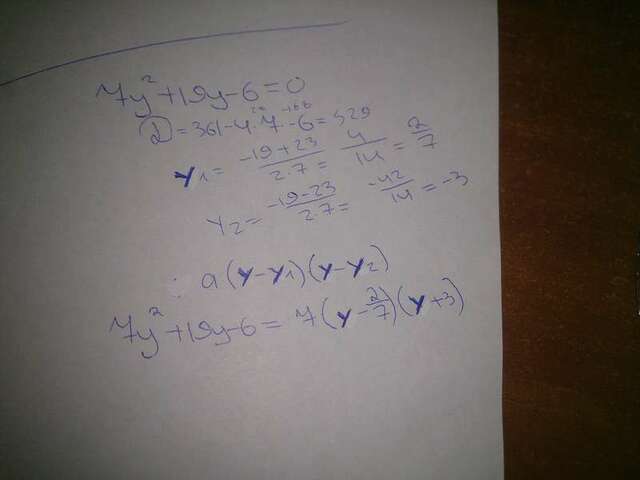 7y²+19y-6=0
D=361-4·7·-6=529
28 -168
y1= -19+23/2·7 = 4/14 = 2/7
y2= -19-23/2·7 = -42/14 = -3
: a(y-y1)(y-y2)
7y²+19y-6=7(y-2/7)(y+3)